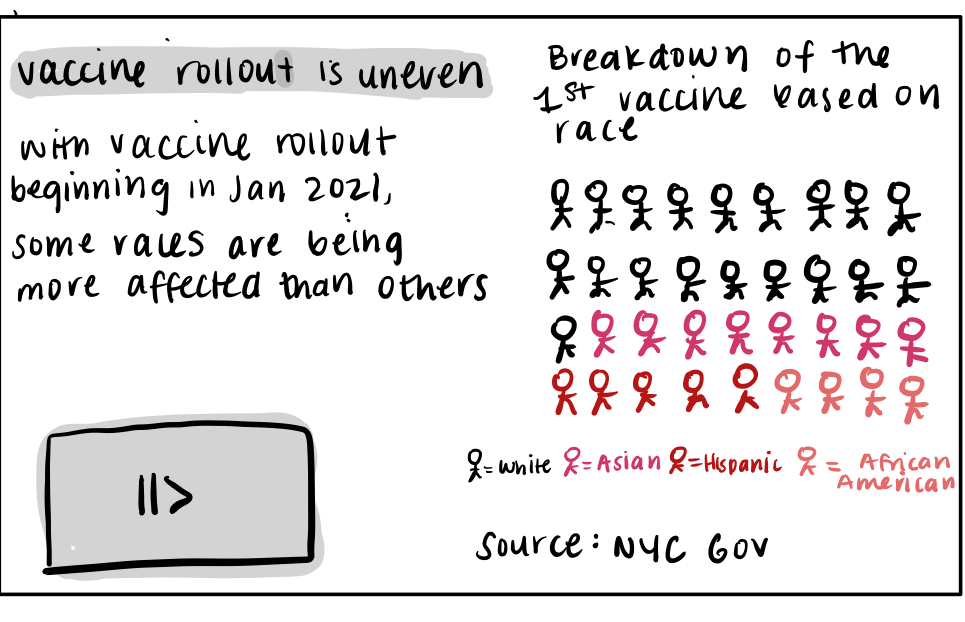 vaccine rollout is uneven
with vaccine rollout
beginning in Jan 2021,
some races are being
more affected than others
||>
Breakdown of the
1st vaccine based on
race
= white = Asian = Hispanic = African
American
Source: NYC Gov